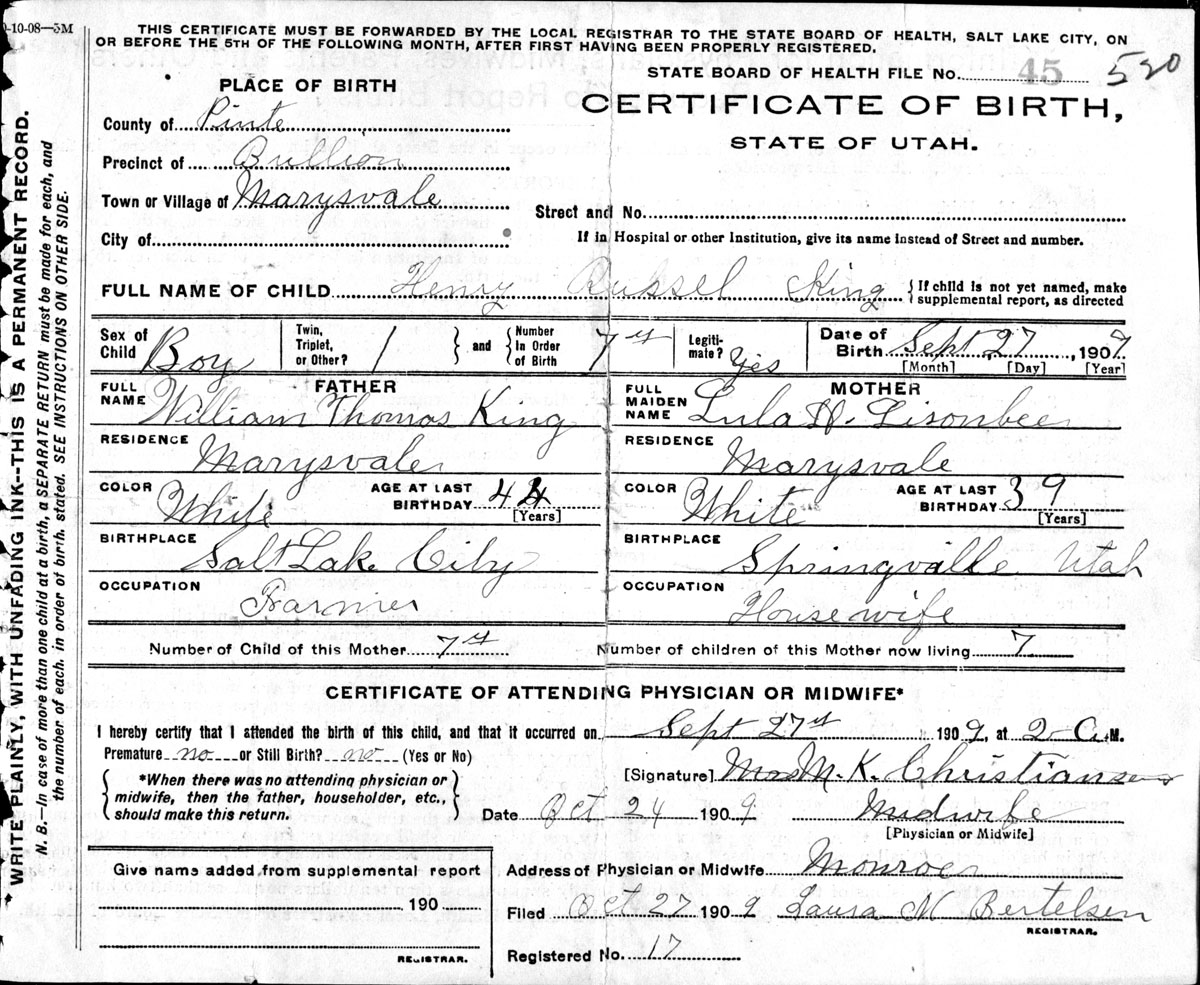 0-10-08—5M
THIS CERTIFICATE MUST BE FORWARDED BY THE LOCAL REGISTRAR TO THE STATE BOARD OF HEALTH, SALT LAKE CITY, ON
OR BEFORE THE 5TH OF THE FOLLOWING MONTH, AFTER FIRST HAVING BEEN PROPERLY REGISTERED.
STATE BOARD OF HEALTH FILE No. 45 520
PLACE OF BIRTH
CERTIFICATE OF BIRTH,
STATE OF UTAH.
County of Piute
Precinct of Bullion
Town or Village of Marysvale
Street and No.
City of
If in Hospital or other Institution, give its name instead of Street and number.
FULL NAME OF CHILD Henry Russel King { If child is not yet named, make supplemental report, as directed
Sex of Child Boy Twin, Triplet, or Other? 1 } and { Number In Order of Birth 7th Legiti-mate? Yes Date of Birth Sept 27, 1909
[Month] [Day] [Year]
FATHER
FULL NAME William Thomas King
MOTHER
FULL MAIDEN NAME Lula H. Lisonbee
RESIDENCE Marysvale
RESIDENCE Marysvale
COLOR White AGE AT LAST BIRTHDAY 44 [Years]
COLOR White AGE AT LAST BIRTHDAY 39 [Years]
BIRTHPLACE Salt Lake City
BIRTHPLACE Springville Utah
OCCUPATION Farmer
OCCUPATION Housewife
Number of Child of this Mother 7th
Number of children of this Mother now living 7
CERTIFICATE OF ATTENDING PHYSICIAN OR MIDWIFE*
I hereby certify that I attended the birth of this child, and that it occurred on Sept 27th 1909, at 2 A.M.
Premature no or Still Birth? no (Yes or No)
{ *When there was no attending physician or midwife, then the father, householder, etc., should make this return. }
[Signature] Mrs M. K. Christiansen
Date Oct 24 1909 Midwife
[Physician or Midwife]
Give name added from supplemental report
190
REGISTRAR.
Address of Physician or Midwife Monroe
Filed Oct 27 1909 Laura M Bertelsen
REGISTRAR.
Registered No. 17
* WRITE PLAINLY, WITH UNFADING INK--THIS IS A PERMANENT RECORD.
N. B.—In case of more than one child at a birth, a SEPARATE RETURN must be made for each, and
the number of each, in order of birth, stated. SEE INSTRUCTIONS ON OTHER SIDE.